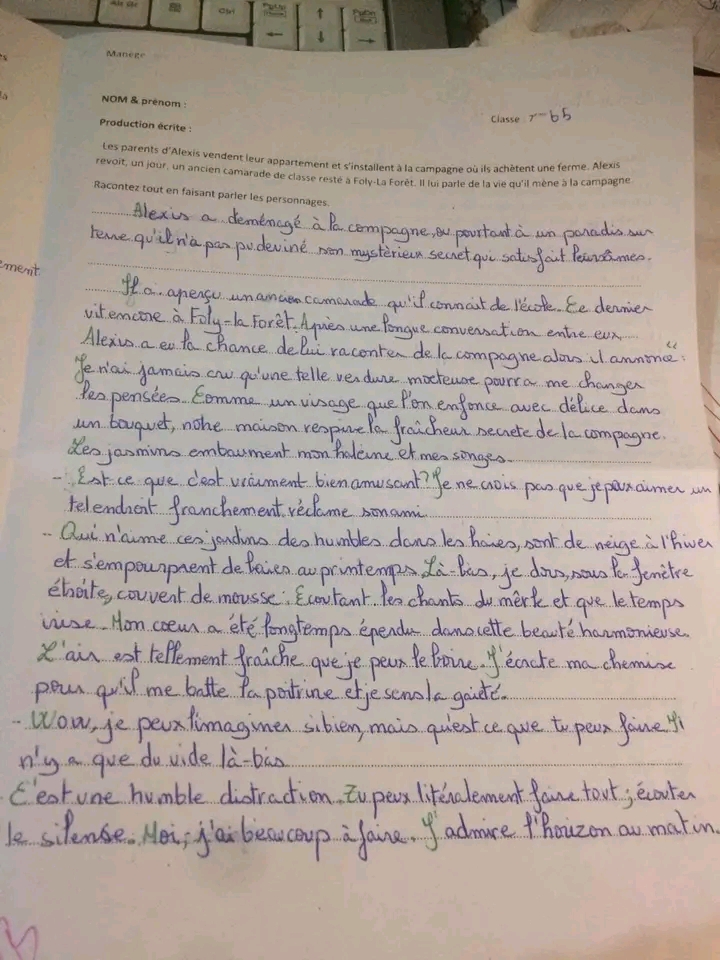 Manège
NOM & prénom :
Classe
Production écrite :
Les parents d'Alexis vendent leur appartement et s'installent à la campagne où ils achètent une ferme. Alexis
revoit, un jour, un ancien camarade de classe resté à Foly-La Forêt. Il lui parle de la vie qu'il mène à la campagne
Racontez tout en faisant parler les personnages.
Alexis a deménagé à la compagne, ou pourtant à un paradis sur
terre qu'il n'a pas pu deviné son mystèrieux secret qui satisfait leurs âmes.
Il a aperçu un ancien camarade qu'il connait de l'école. Ce dernier
vit encore à Foly-la Forêt. Après une longue conversation entre eux
Alexis a eu la chance de lui raconter de la compagne alors il annonce : "
Je n'ai jamais cru qu'une telle verdure mocteuse pourra me changer
les pensées. Comme un visage que l'on enfonce avec délice dans
un bouquet, notre maison respire la fraîcheur secrete de la compagne.
Les jasmins embaument mon haleine et mes songes.
- Est ce que c'est vraiment bien amusant? Je ne crois pas que je peux aimer un
tel endroit franchement, réclame son ami
- Qui n'aime ces jardins des humbles dans les haies, sont de neige à l'hiver
et s'empourprent de baies au printemps. Là-bas, je dors, sous la fenêtre
étroite, couvent de mousse. Ecoutant les chants du mêrle et que le temps
irise. Mon cœur a été longtemps éperdu dans cette beauté harmonieuse.
L'air est tellement fraîche que je peux le boire. J'écrate ma chemise
pour qu'il me batte la poitrine et je sens la gaieté.
- Wow, je peux l'imaginer si bien, mais qu'est ce que tu peux faire. Il
n'y a que du vide là-bas
C'est une humble distraction. Tu peux litéralement faire tout ; écouter
le silense. Moi, j'ai beaucoup à faire. J'admire l'horizon au matin.